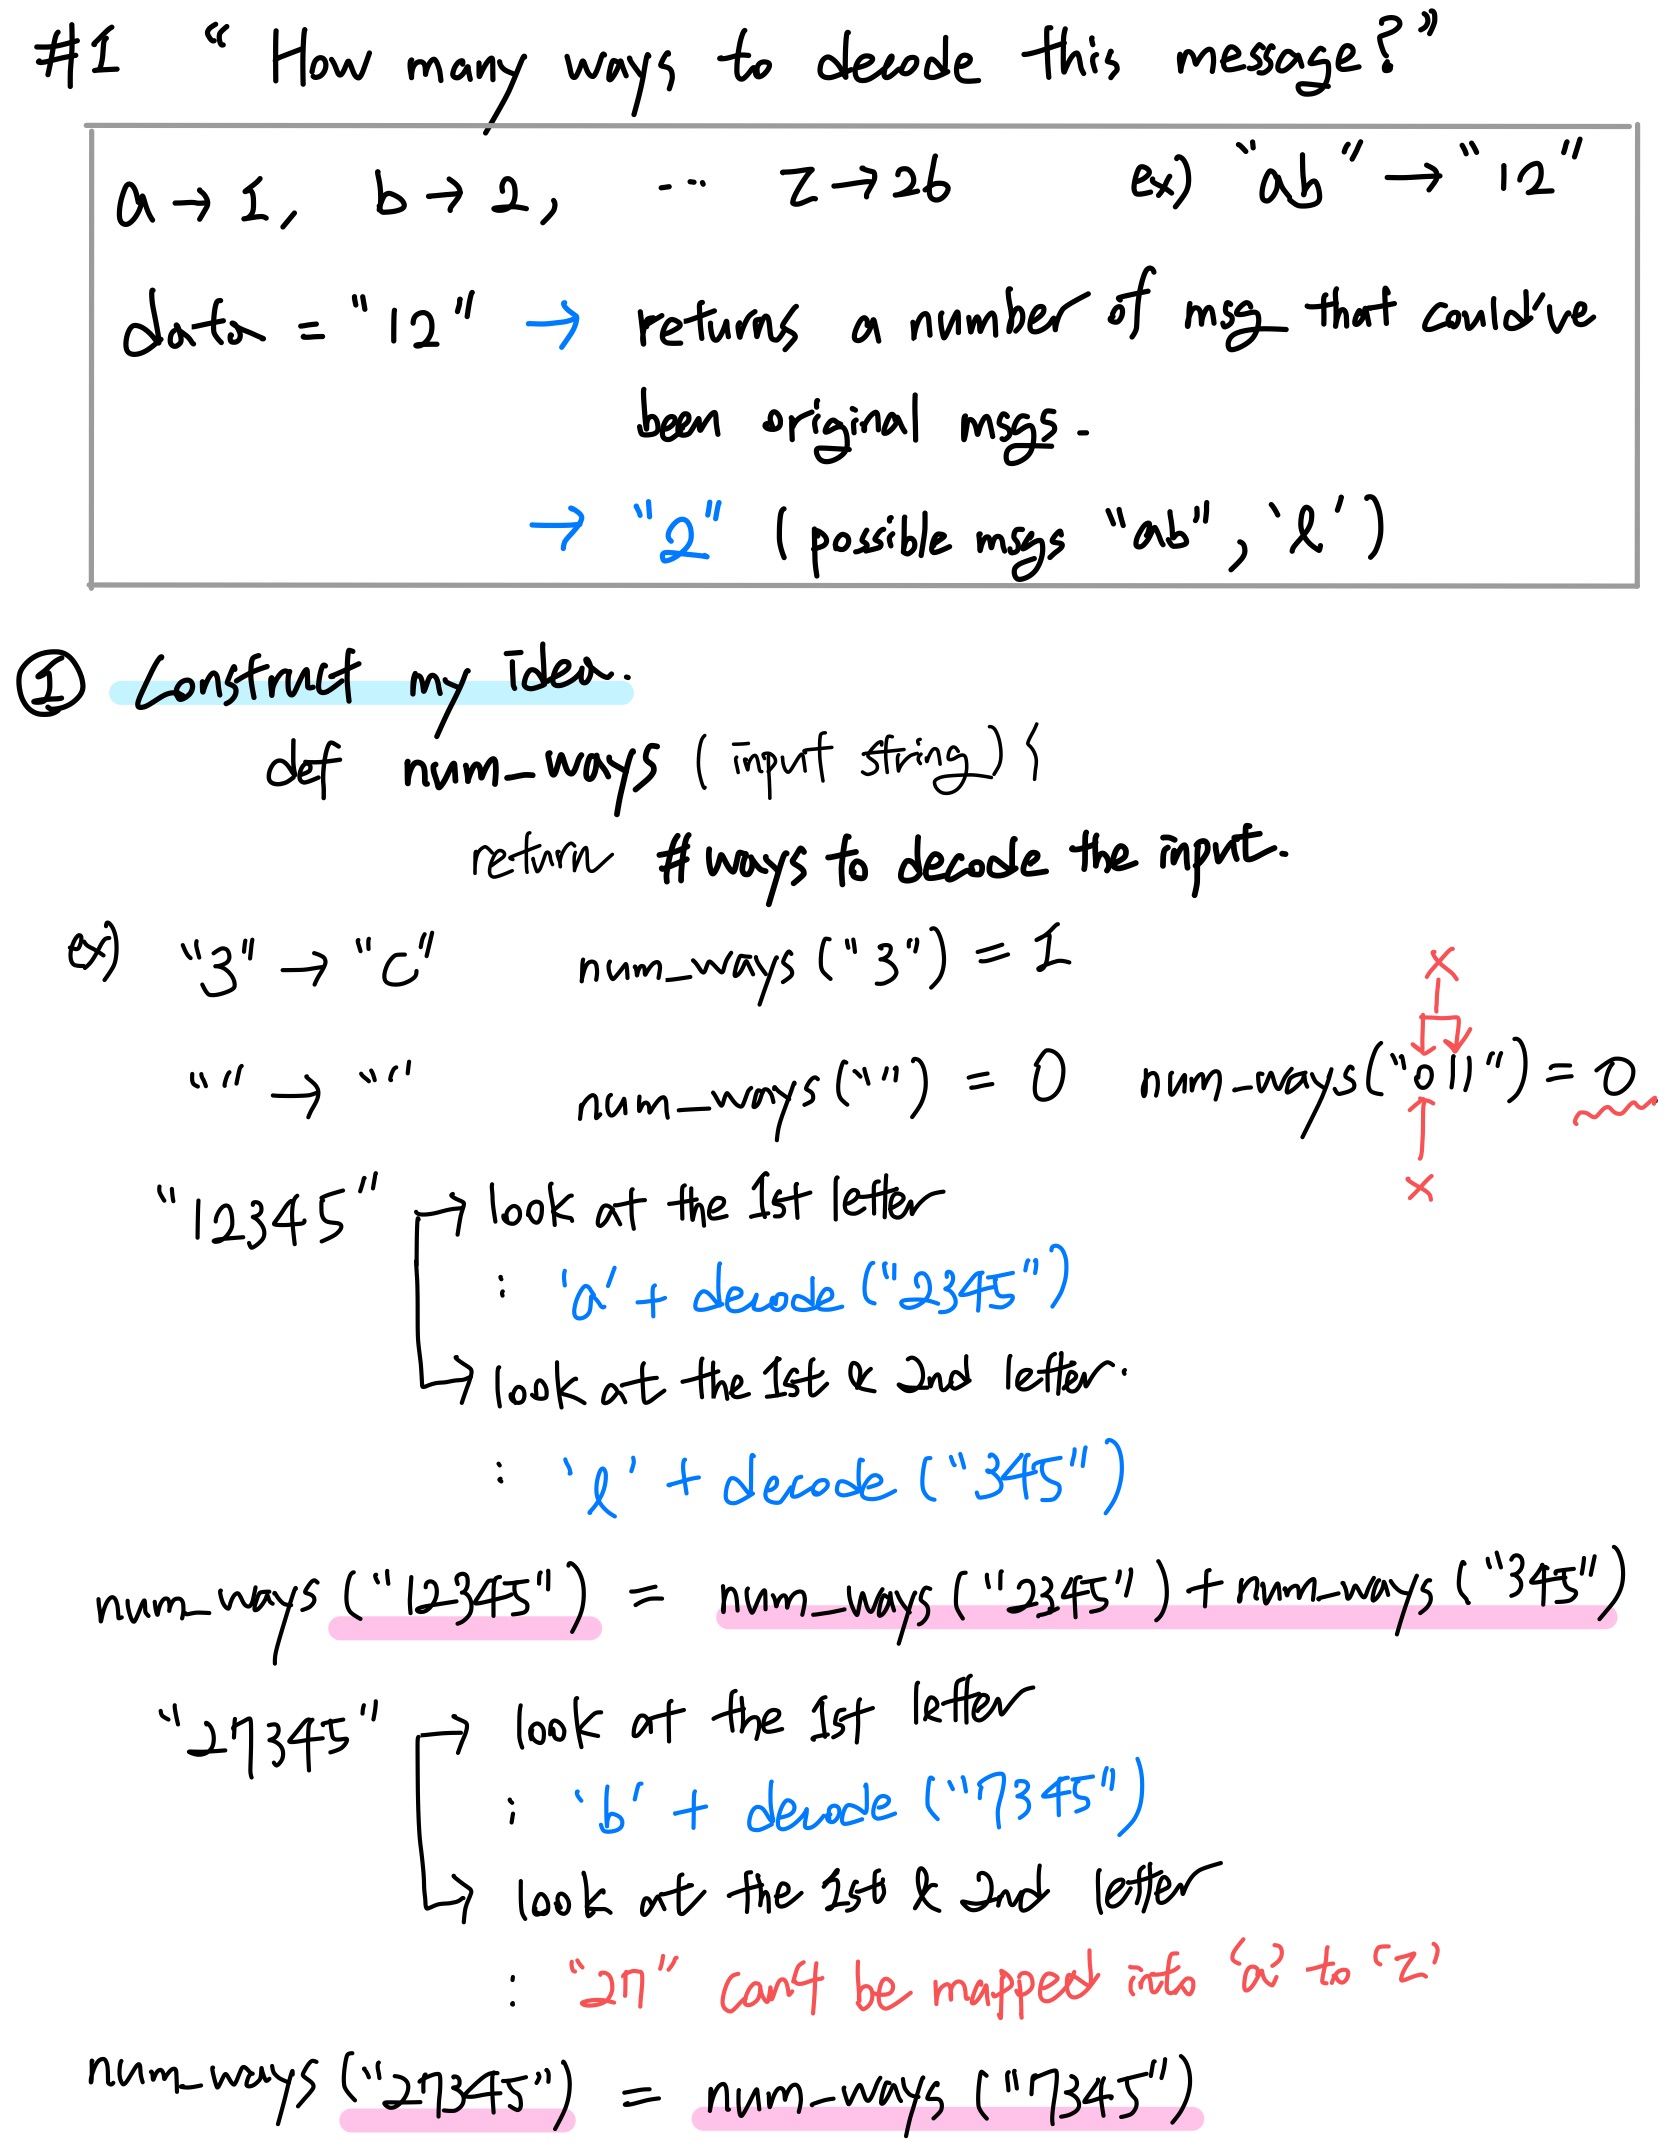 #1 “How many ways to decode this message?”
a → 1, b → 2, ... z → 26 ex) "ab" → "12"
data = "12" → returns a number of msg that could've
been original msgs.
→ "2" (possible msgs "ab", 'l')
① Construct my idea.
def num_ways (input string) {
return # ways to decode the input.
ex) "3" → "c" num_ways ("3") = 1
"" → "" num_ways ("") = 0 num_ways("011") = 0
x
x
"12345" → look at the 1st letter
: 'a' + decode ("2345")
→ look at the 1st & 2nd letter.
: 'l' + decode ("345")
num_ways ("12345") = num_ways ("2345") + num_ways ("345")
"27345" → look at the 1st letter
: 'b' + decode ("7345")
→ look at the 1st & 2nd letter
: "27" can't be mapped into 'a' to 'z'
num_ways ("27345") = num_ways ("7345")